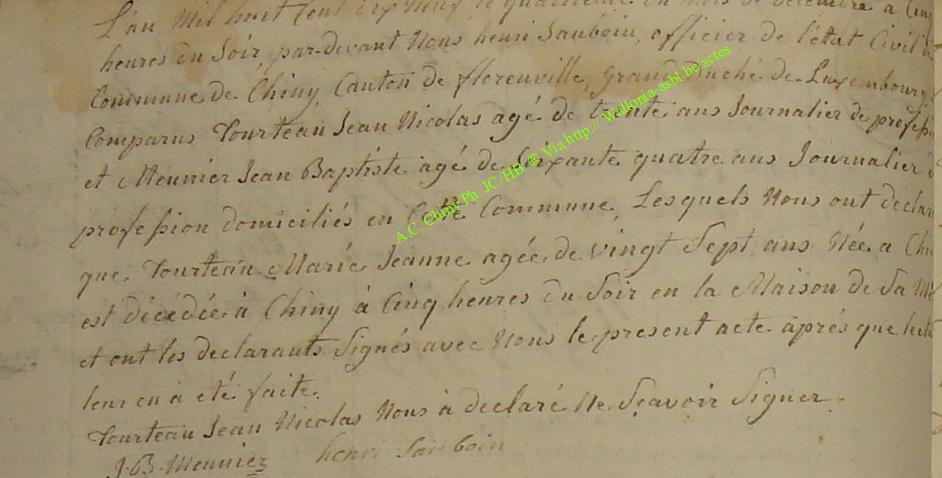 L'an Mil huit Cent dix Neuf le quatrieme du mois de Decembre a Cinq
heures du Soir, par-devant Nous henri Sauboin, officier de l'état Civil
Commune de Chiny, Canton de florenville, grand duché de Luxembourg,
Comparus Tourteau Jean Nicolas agé de trente ans Journalier de profession
et Meunier Jean Baptiste agé de Soixante quatre ans Journalier
profession domiciliés en Cette Commune, Lesquels Nous ont declaré
que Tourteau Marie Jeanne agée de vingt Sept ans Née a Chiny
est décédée à Chiny à Cinq heures du Soir en la Maison de Sa
et ont les declarants Signés avec Nous le present acte aprés que
leur en à été faite.
Tourteau Jean Nicolas Nous à declaré Ne Sçavoir Signer.
J.B. Meunier henri Sauboin
A.C. Chiny Ph. JC /HB @ Via http:// Wallonia-asbl.be/actes